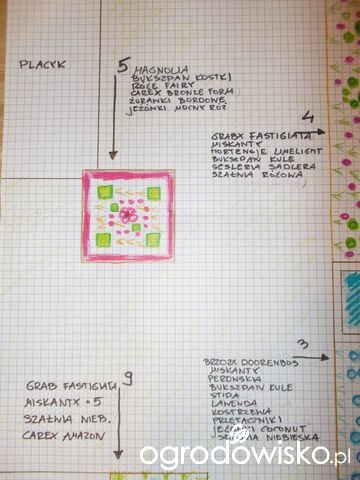 PLACYK
5
MAGNOLIA
BUKSZPAN KOSTKI
RÓŻE FAIRY
CAREX BRONZE FORM
ŻURAWKI BORDOWE,
JEŻÓWKI MOCNY RÓŻ
4
GRABY FASTIGIATA
MISKANTY
HORTENSJE LIMELIGHT
BUKSZPAN KULE
SESLERIA SADLERA
SZAŁWIA RÓŻOWA
3
BRZOZY DOORENBOS
MISKANTY
PEROWSKIA
BUKSZPAN KULE
STIPA
LAWENDA
KOSTRZEWA
PRZETACZNIKI
JEŻÓWKI COCONUT
SZAŁWIA NIEBIESKA
9
GRAB FASTIGIATA
MISKANTY × 5
SZAŁWIA NIEB.
CAREX AMAZON
ogrodowisko.pl